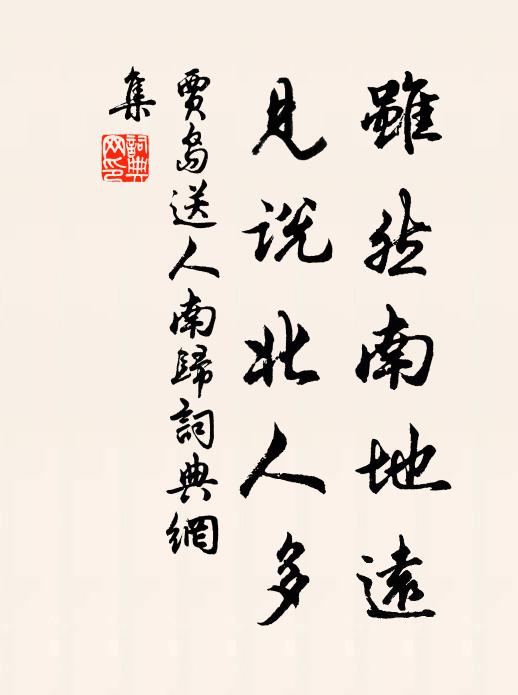 雖然南地遠
見說北人多
賈島送人南歸詞典網
集
詞典
网印